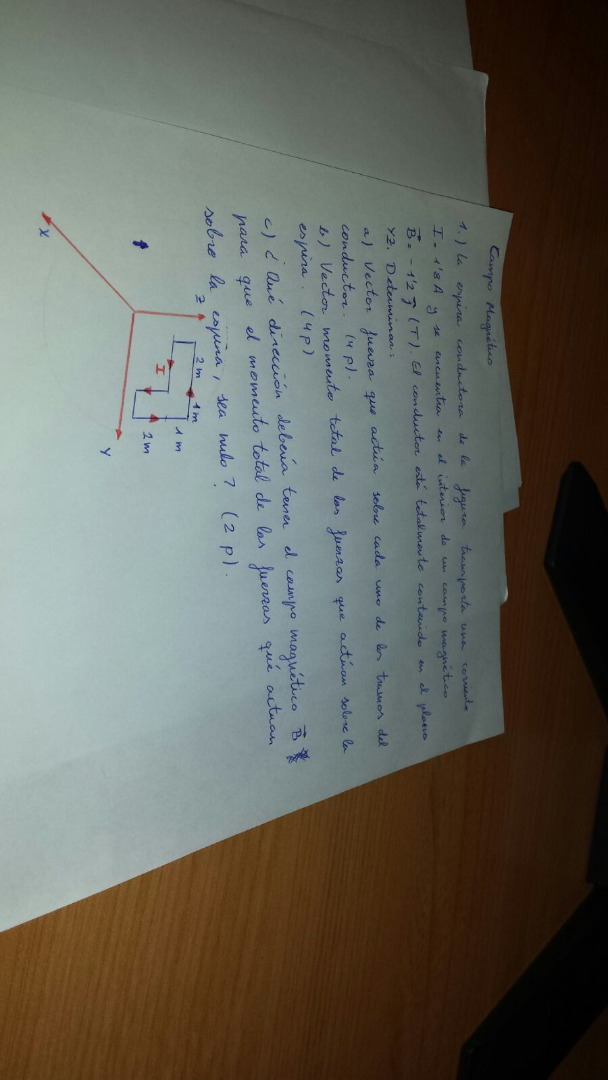 Campo Magnético
1.) La espira conductora de la figura transporta una corriente
I = 1'8 A y se encuentra en el interior de un campo magnético
B = -1'2 j (T). El conductor está totalmente contenido en el plano
YZ. Determinar:
a) Vector fuerza que actúa sobre cada uno de los tramos del
conductor. (4 p).
b) Vector momento total de las fuerzas que actúan sobre la
espira. (4 p)
c) ¿Qué dirección debería tener el campo magnético B
para que el momento total de las fuerzas que actúan
sobre la espira, sea nulo? (2 p).
Z
2m
1m
I
1m
2m
X
Y